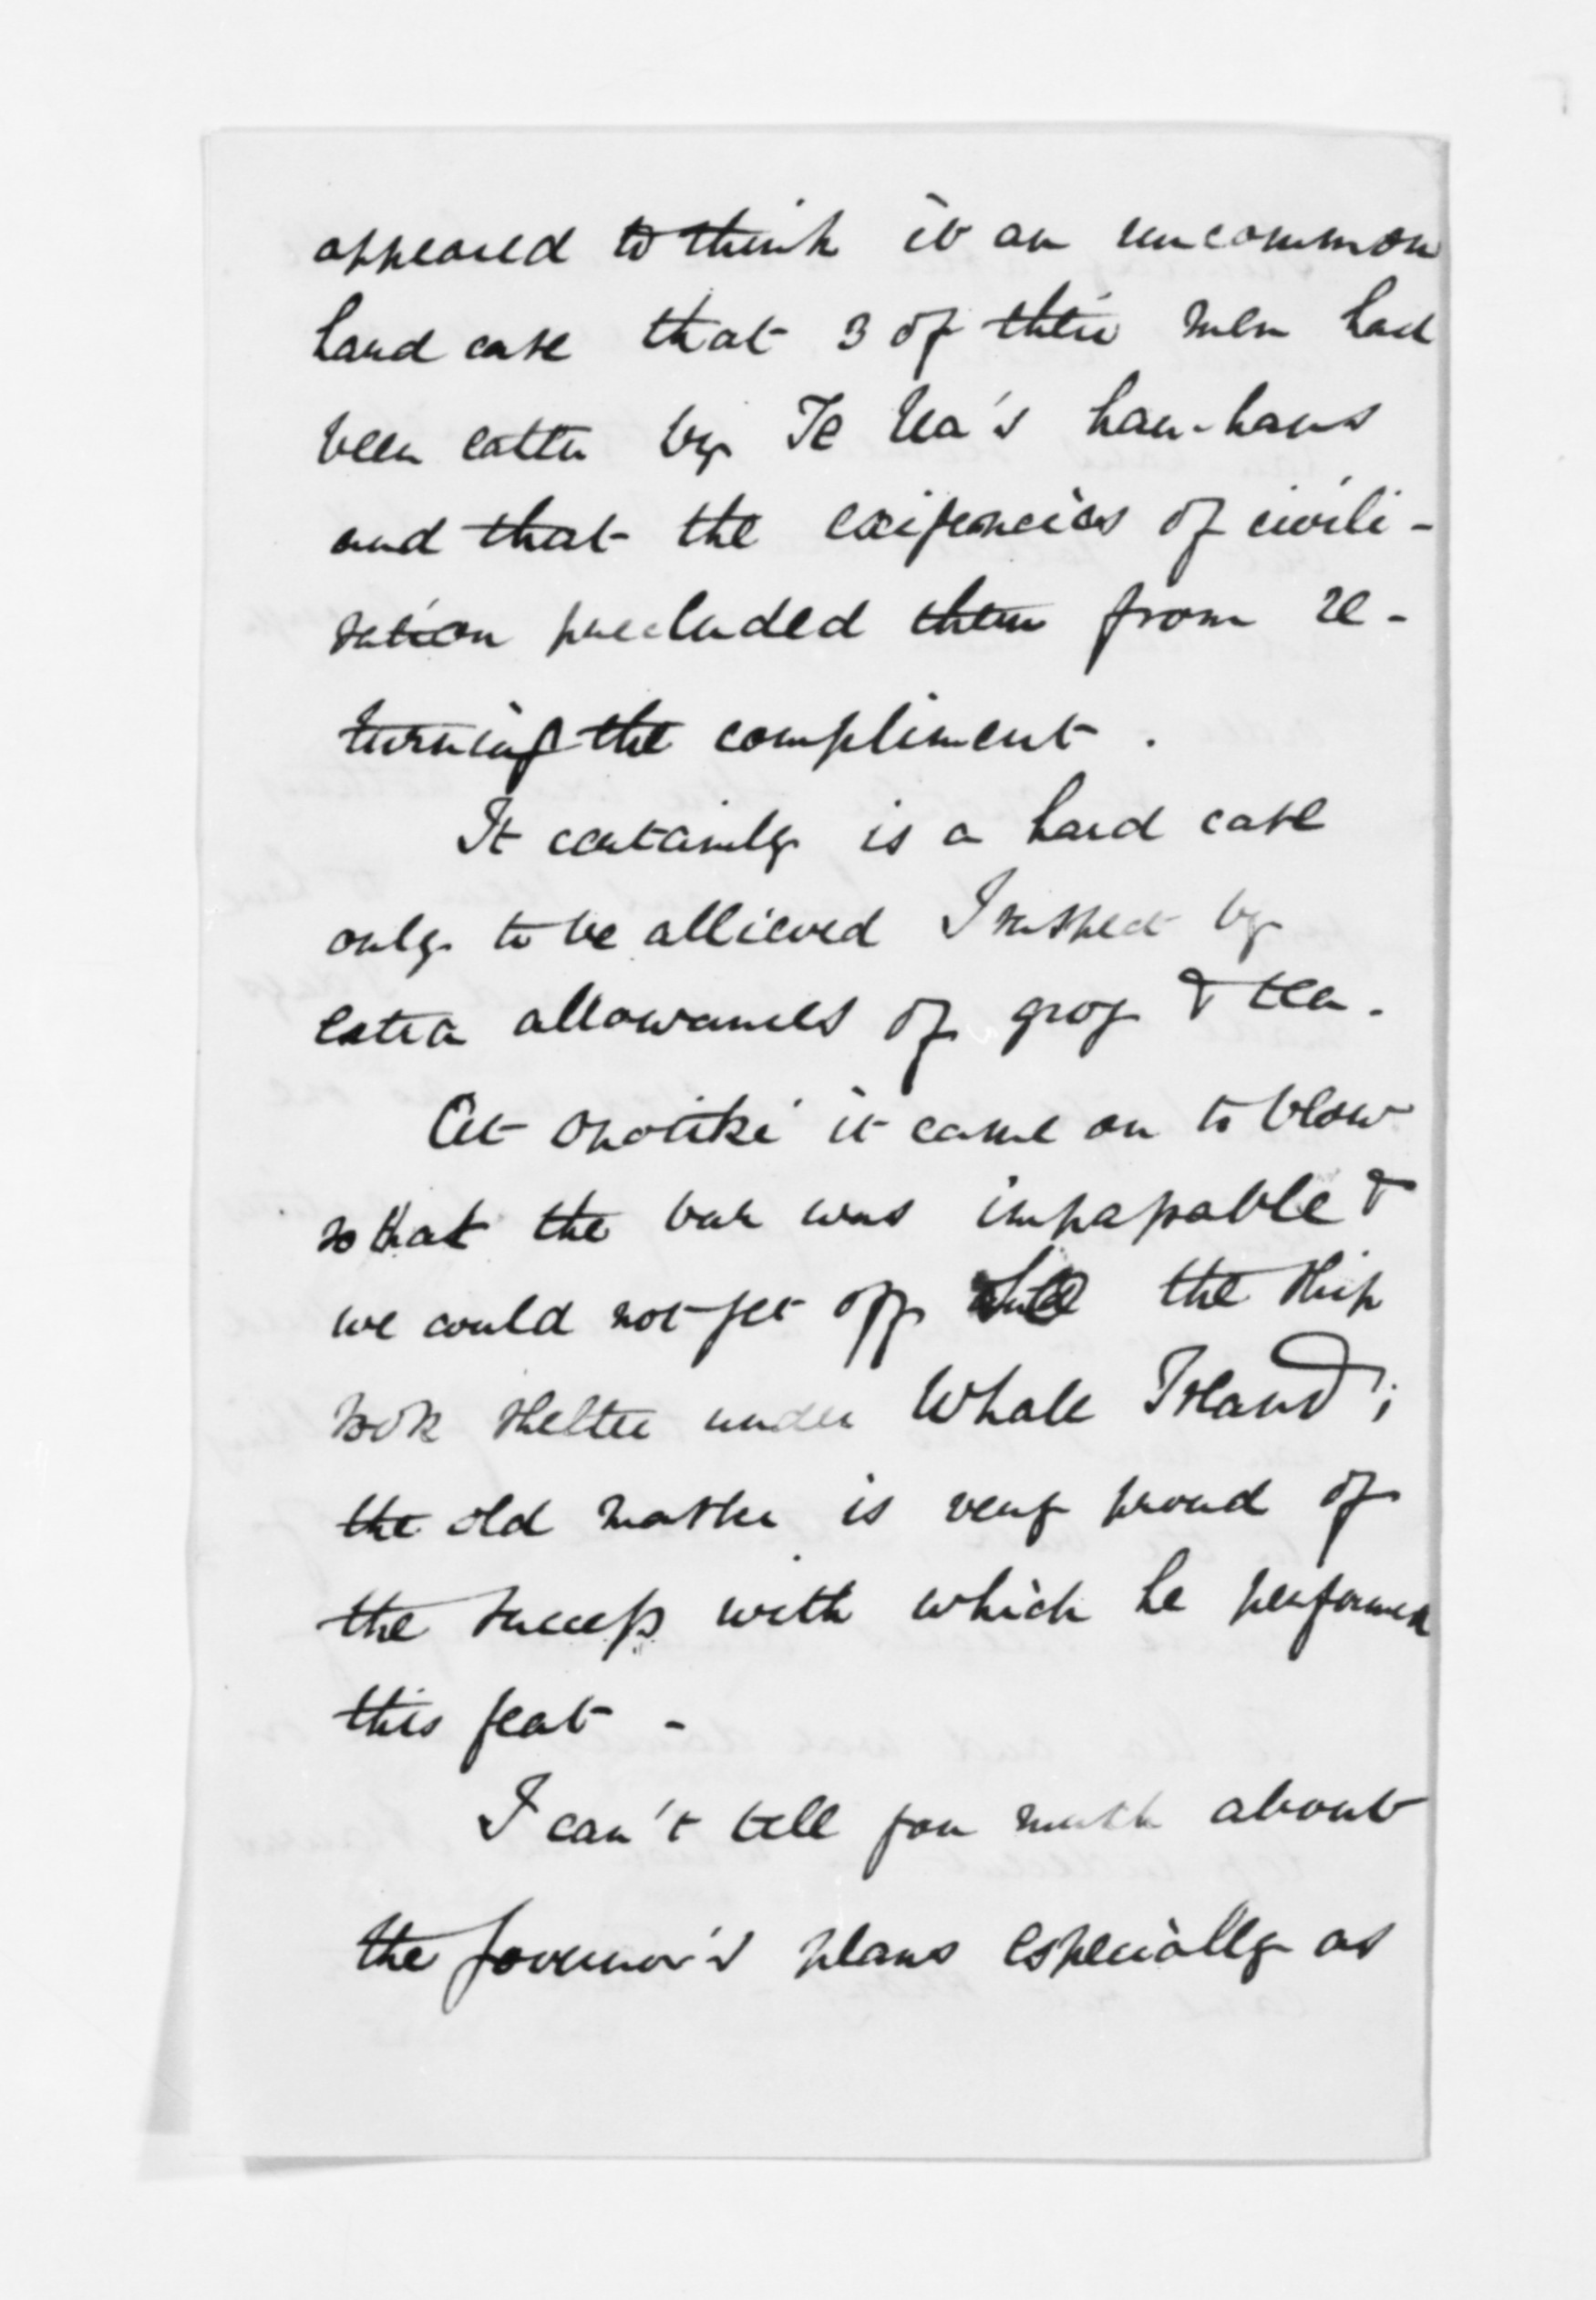 appeared to think it an uncommon
hard case that 3 of their men had
been eaten by Te Ua's hau-haus
and that the exigencies of civili-
sation precluded them from re-
turning the compliment.
It certainly is a hard case
only to be allieved I suspect by
extra allowances of grog & tea.
At Opotiki it came on to blow
so that the bar was impassable &
we could not get off while the ship
took shelter under Whale Island;
the old master is very proud of
the success with which he performed
this feat -
I can't tell you much about
the Governor's plans especially as